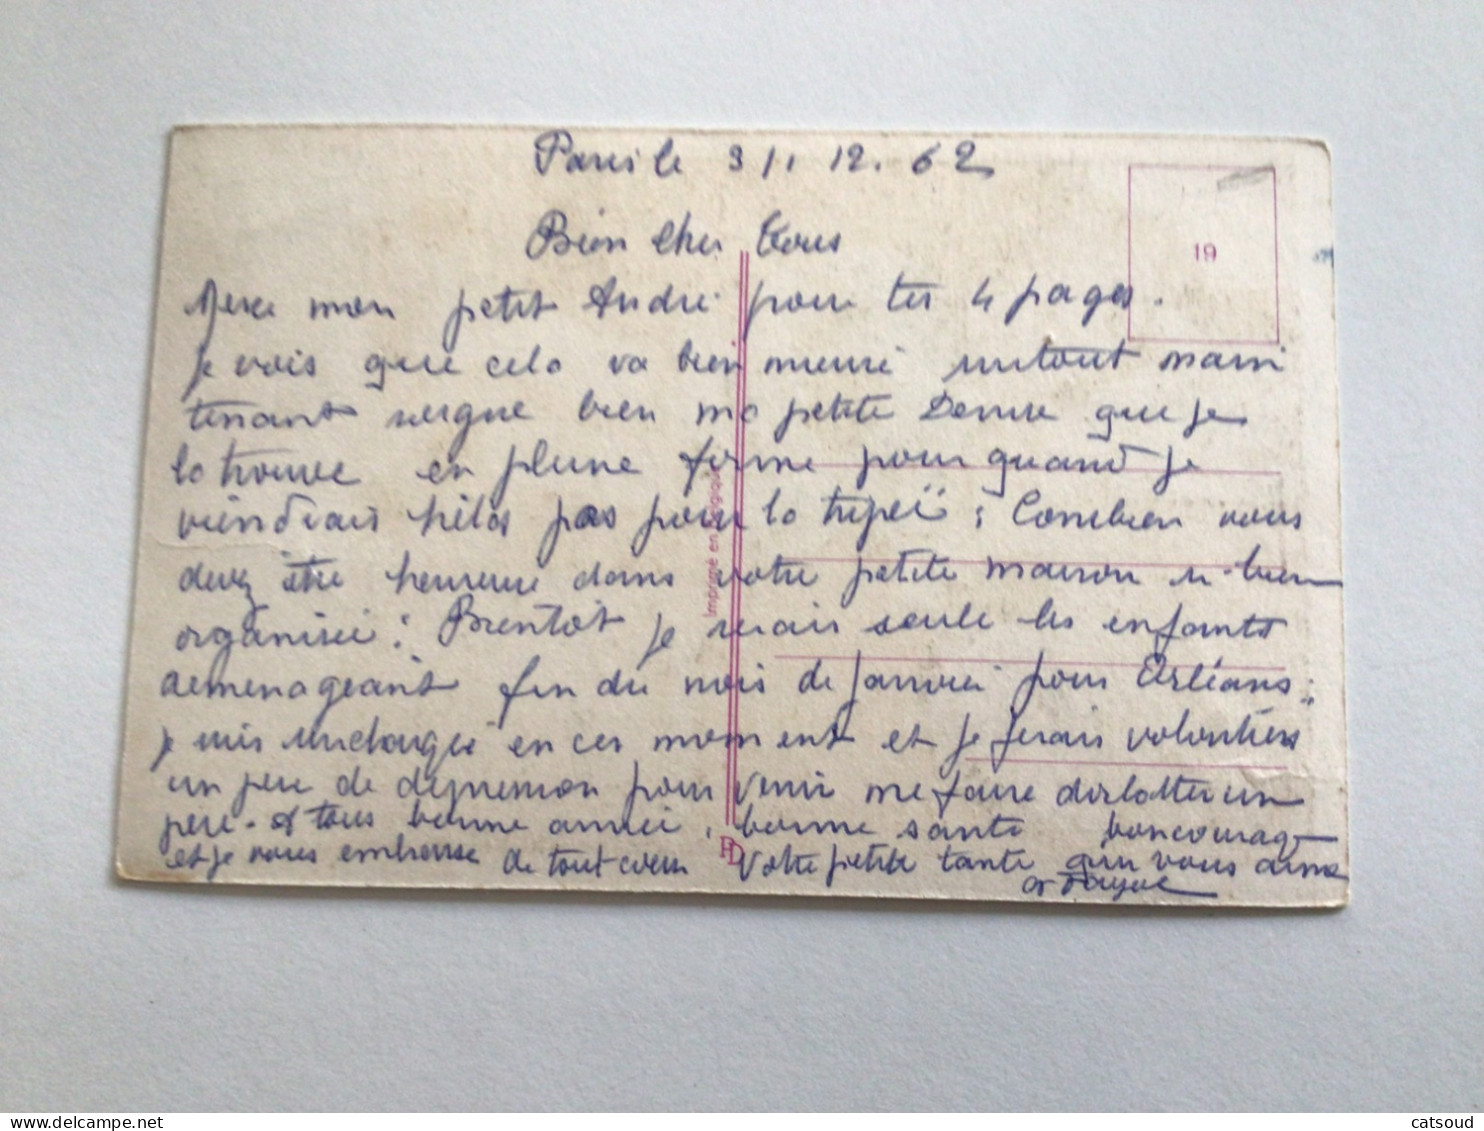 Paris le 31. 12. 62
Bien cher tous
19
Merci mon petit André pour tes 4 pages.
je vois que cela va bien mieux surtout main
tenant soigne bien ma petite Denise que je
la trouve en pleine forme pour quand je
viendrais hélas pas pour la : Combien vous
devez être heureux dans votre petite maison si bien
organisée : Bientôt je serais seule les enfants
aemenageant fin du mois de Janvier pour Orléans :
je suis en ces moment et je ferais volontiers
un peu de dépression pour venir me faire dorlotter un
peu. A tous bonne année, bonne santé bon courage
et je vous embrasse de tout coeur Votre petite tante qui vous aime
Imprimé en Belgique
PD
catsoud